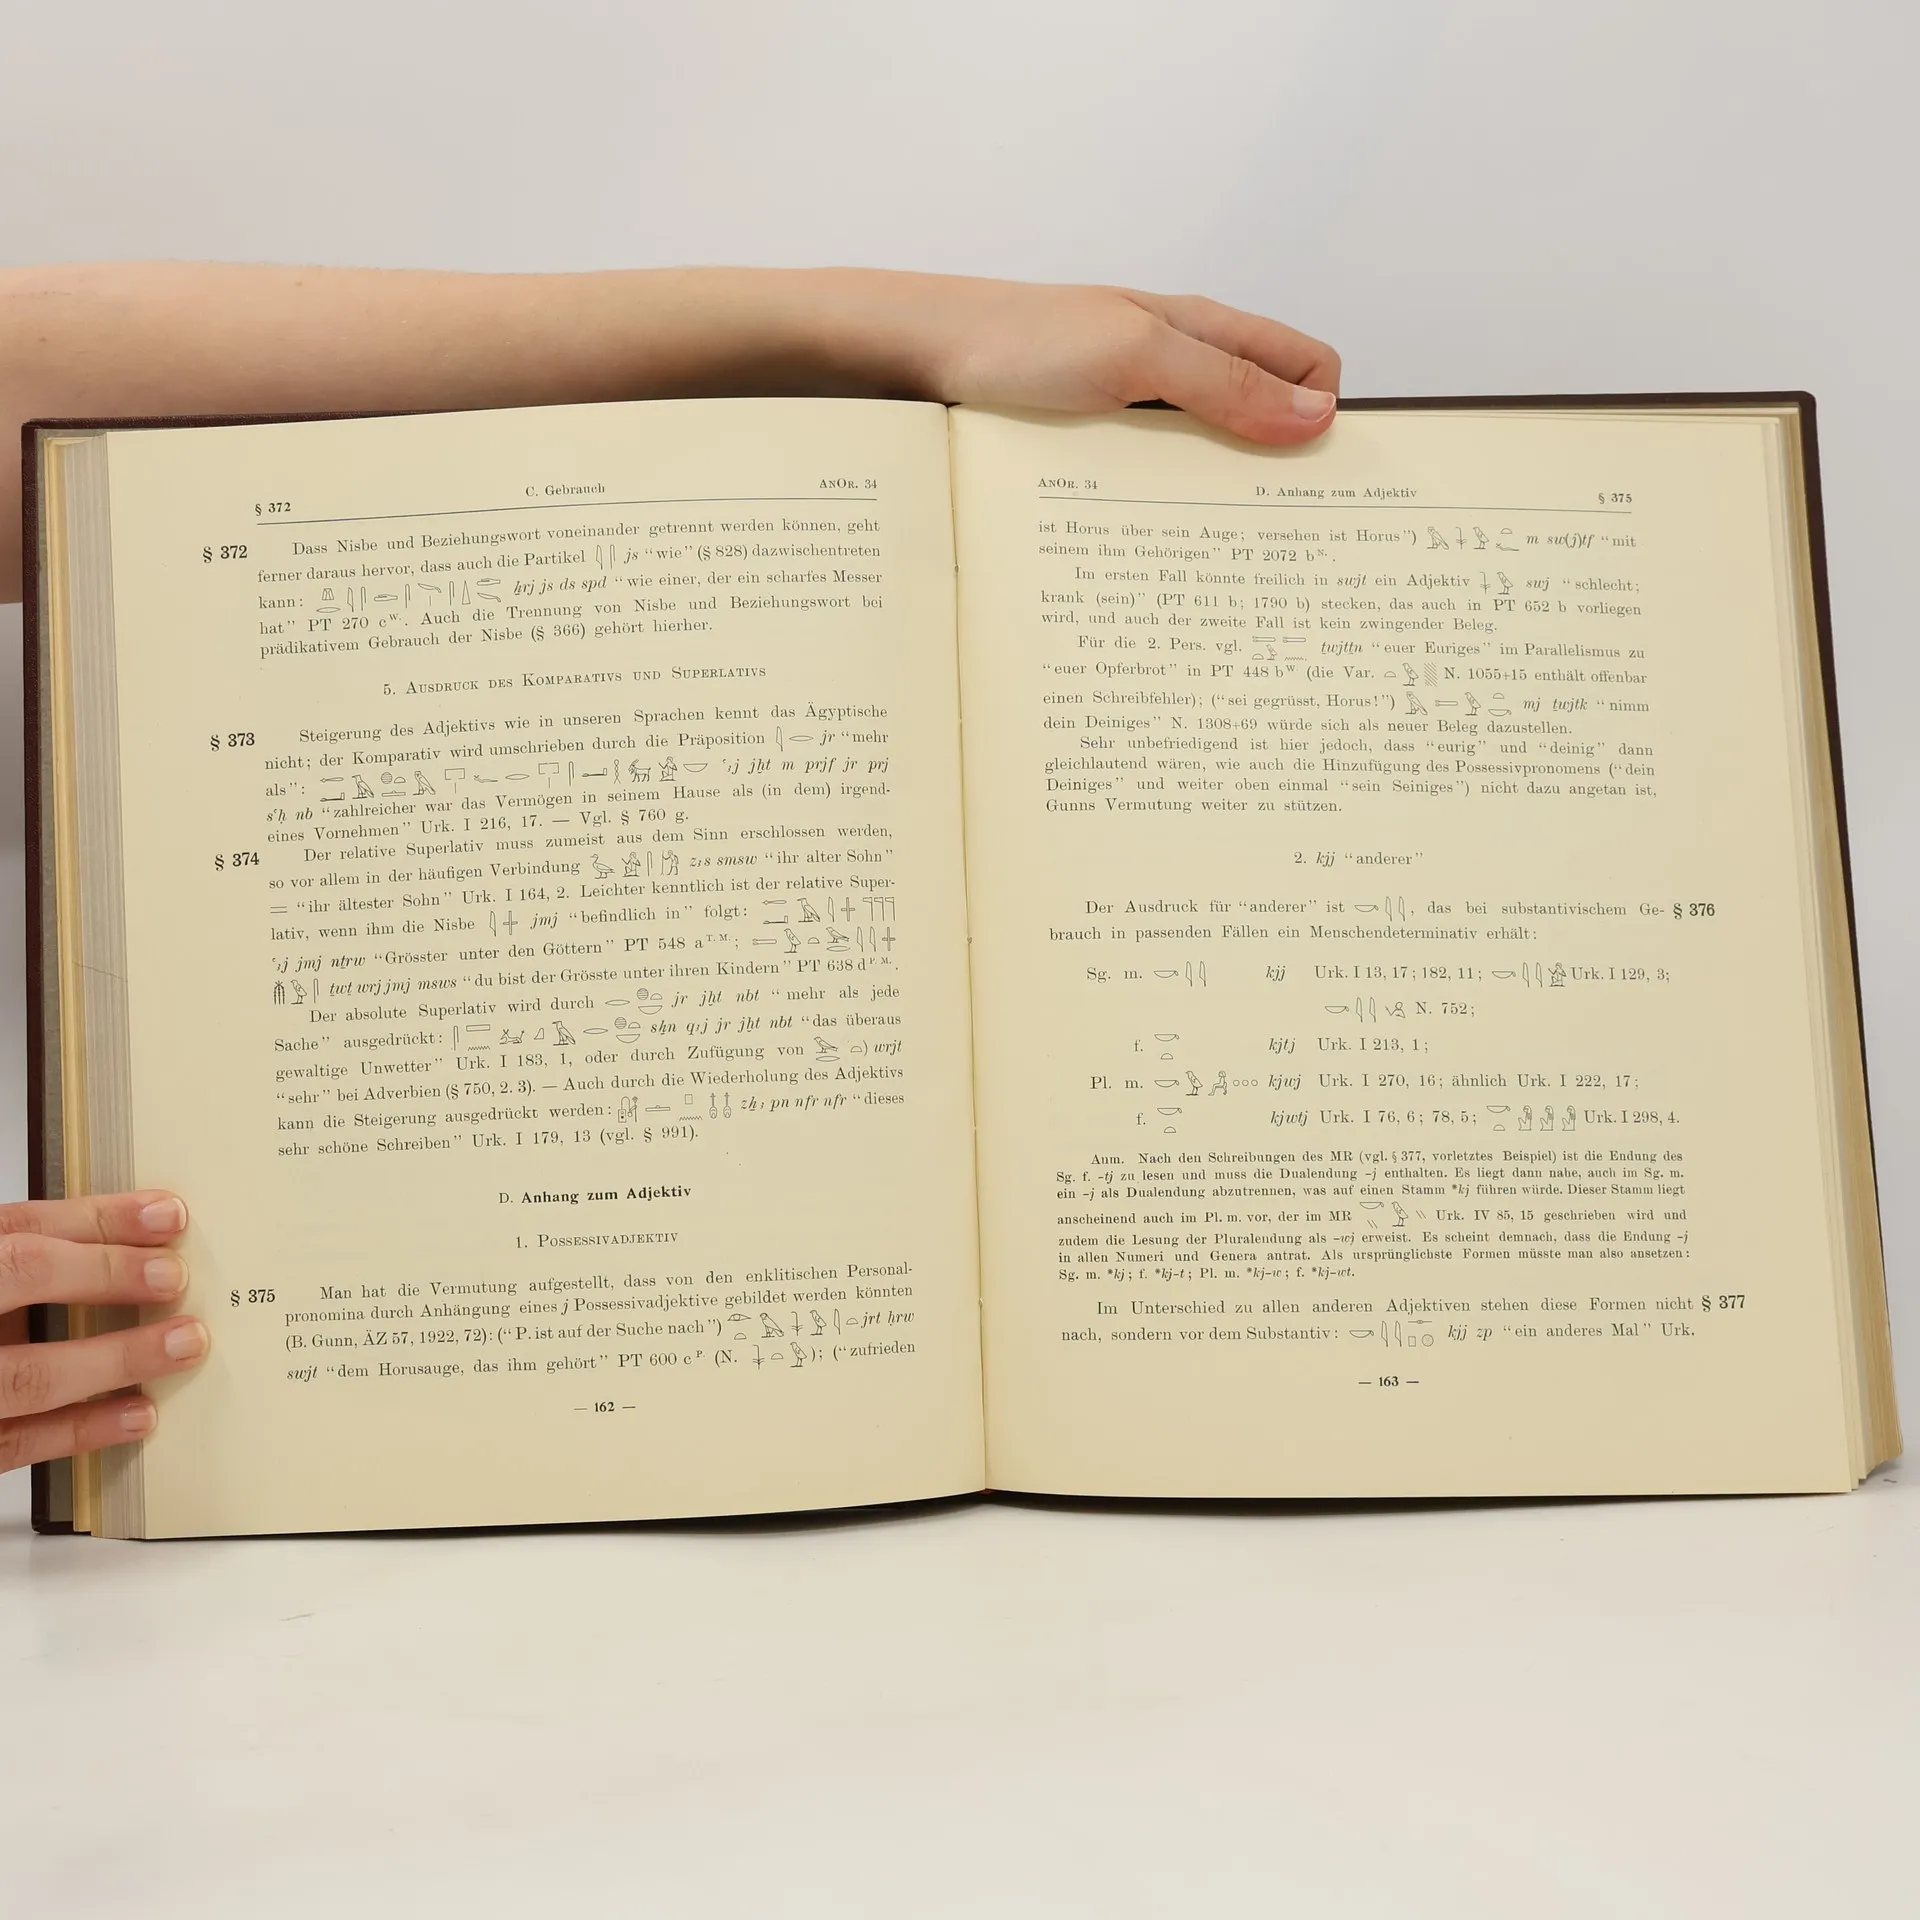 § 372 C. Gebrauch AnOr. 34
§ 372 Dass Nisbe und Beziehungswort voneinander getrennt werden können, geht
ferner daraus hervor, dass auch die Partikel 𓇋𓋴 js “wie” (§ 828) dazwischentreten
kann: ẖrj js ds spd “wie einer, der ein scharfes Messer
hat” PT 270 c W. . Auch die Trennung von Nisbe und Beziehungswort bei
prädikativem Gebrauch der Nisbe (§ 366) gehört hierher.
5. Ausdruck des Komparativs und Superlativs
§ 373 Steigerung des Adjektivs wie in unseren Sprachen kennt das Ägyptische
nicht; der Komparativ wird umschrieben durch die Präposition 𓇋𓂋 jr “mehr
als”: ꜥꜣj jḫt m prjf jr prj
sꜥḥ nb “zahlreicher war das Vermögen in seinem Hause als (in dem) irgend-
eines Vornehmen” Urk. I 216, 17. — Vgl. § 760 g.
§ 374 Der relative Superlativ muss zumeist aus dem Sinn erschlossen werden,
so vor allem in der häufigen Verbindung zꜣs smsw “ihr alter Sohn”
= “ihr ältester Sohn” Urk. I 164, 2. Leichter kenntlich ist der relative Super-
lativ, wenn ihm die Nisbe 𓇋𓏶 jmj “befindlich in” folgt:
ꜥꜣj jmj nṯrw “Grösster unter den Göttern” PT 548 a T. M. ;
ṯwt wrj jmj msws “du bist der Grösste unter ihren Kindern” PT 638 d P. M. .
Der absolute Superlativ wird durch jr jḫt nbt “mehr als jede
Sache” ausgedrückt: šẖn qꜣj jr jḫt nbt “das überaus
gewaltige Unwetter” Urk. I 183, 1, oder durch Zufügung von 𓅨𓂋𓏏) wrjt
“sehr” bei Adverbien (§ 750, 2. 3). — Auch durch die Wiederholung des Adjektivs
kann die Steigerung ausgedrückt werden: zẖꜣ pn nfr nfr “dieses
sehr schöne Schreiben” Urk. I 179, 13 (vgl. § 991).
D. Anhang zum Adjektiv
1. Possessivadjektiv
§ 375 Man hat die Vermutung aufgestellt, dass von den enklitischen Personal-
pronomina durch Anhängung eines j Possessivadjektive gebildet werden könnten
(B. Gunn, ÄZ 57, 1922, 72): (“P. ist auf der Suche nach”) jrt ḥrw
swjt “dem Horusauge, das ihm gehört” PT 600 c P. (N. 𓇓𓏏𓅱); (“zufrieden
— 162 —
AnOr. 34 D. Anhang zum Adjektiv § 375
ist Horus über sein Auge; versehen ist Horus”) m sw(j)tf “mit
seinem ihm Gehörigen” PT 2072 b N. .
Im ersten Fall könnte freilich in swjt ein Adjektiv 𓇓𓅱 swj “schlecht;
krank (sein)” (PT 611 b; 1790 b) stecken, das auch in PT 652 b vorliegen
wird, und auch der zweite Fall ist kein zwingender Beleg.
Für die 2. Pers. vgl. ṯwjtṯn “euer Euriges” im Parallelismus zu
“euer Opferbrot” in PT 448 b W. (die Var. 𓏏𓅱 N. 1055+15 enthält offenbar
einen Schreibfehler); (“sei gegrüsst, Horus!”) mj ṯwjtk “nimm
dein Deiniges” N. 1308+69 würde sich als neuer Beleg dazustellen.
Sehr unbefriedigend ist hier jedoch, dass “eurig” und “deinig” dann
gleichlautend wären, wie auch die Hinzufügung des Possessivpronomens (“dein
Deiniges” und weiter oben einmal “sein Seiniges”) nicht dazu angetan ist,
Gunns Vermutung weiter zu stützen.
2. kjj “anderer”
Der Ausdruck für “anderer” ist 𓎡𓇋𓇋, das bei substantivischem Ge- § 376
brauch in passenden Fällen ein Menschendeterminativ erhält:
Sg. m. 𓎡𓇋𓇋 kjj Urk. I 13, 17; 182, 11; 𓎡𓇋𓇋𓀀 Urk. I 129, 3;
𓎡𓇋𓇋 N. 752;
f. 𓎡𓏏 kjtj Urk. I 213, 1;
Pl. m. 𓎡𓅱 kjwj Urk. I 270, 16; ähnlich Urk. I 222, 17;
f. 𓎡𓏏 kjwtj Urk. I 76, 6; 78, 5; 𓎡𓏏 Urk. I 298, 4.
Anm. Nach den Schreibungen des MR (vgl. § 377, vorletztes Beispiel) ist die Endung des
Sg. f. -tj zu lesen und muss die Dualendung -j enthalten. Es liegt dann nahe, auch im Sg. m.
ein -j als Dualendung abzutrennen, was auf einen Stamm *kj führen würde. Dieser Stamm liegt
anscheinend auch im Pl. m. vor, der im MR 𓎡𓏭𓅱𓏭 Urk. IV 85, 15 geschrieben wird und
zudem die Lesung der Pluralendung als -wj erweist. Es scheint demnach, dass die Endung -j
in allen Numeri und Genera antrat. Als ursprünglichste Formen müsste man also ansetzen:
Sg. m. *kj; f. *kj-t; Pl. m. *kj-w; f. *kj-wt.
Im Unterschied zu allen anderen Adjektiven stehen diese Formen nicht § 377
nach, sondern vor dem Substantiv: 𓎡𓇋𓇋𓊃𓊪𓊗 kjj zp “ein anderes Mal” Urk.
— 163 —